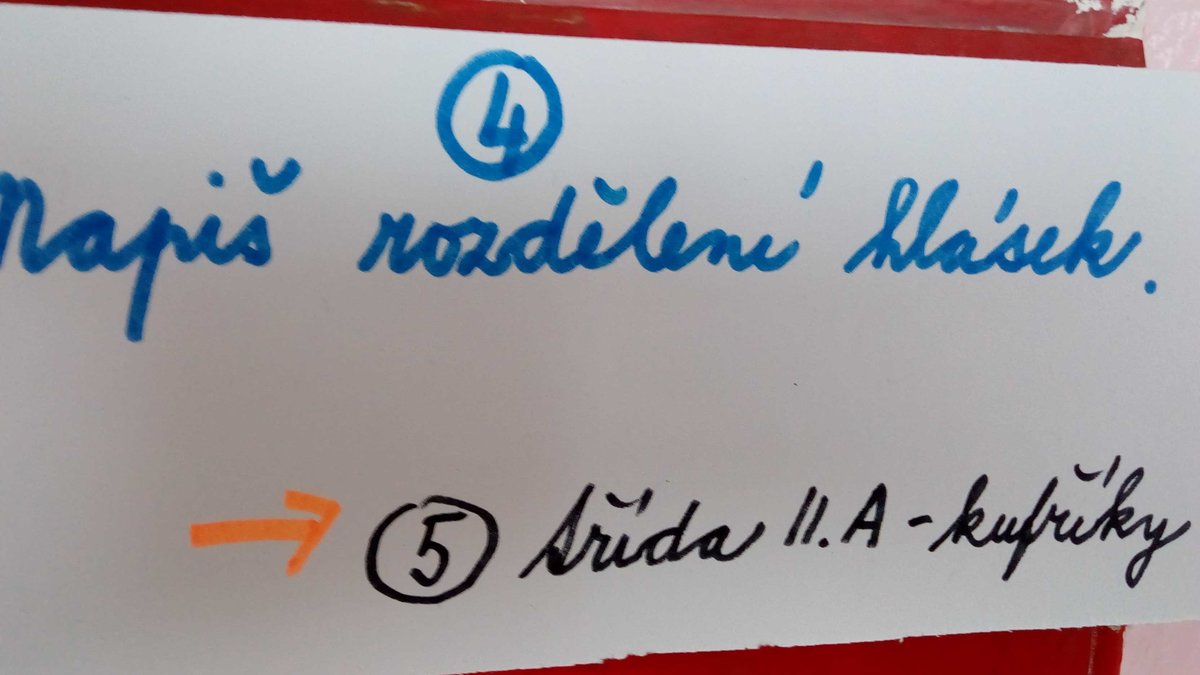 4
Napiš rozdělení hlásek.
→ 5 třída II.A - kufříky